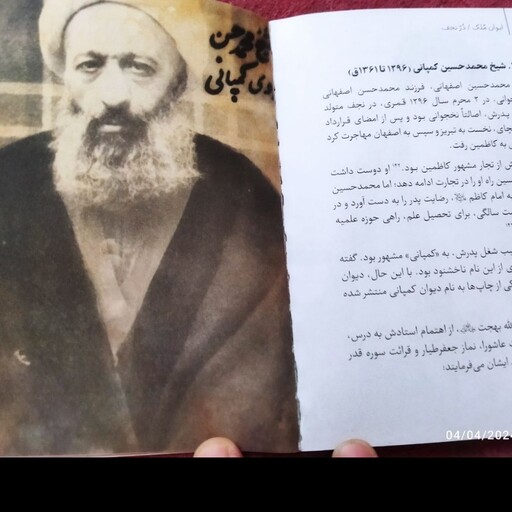 ایوان مُلک / دُرّ نجف
شیخ محمدحسین کمپانی (۱۲۹۶ تا ۱۳۶۱ق)
محمدحسین اصفهانی، فرزند محمدحسن اصفهانی
در ۲ محرم سال ۱۲۹۶ قمری، در نجف متولد
پدرش، اصالتاً نخجوانی بود و پس از امضای قرارداد
نخست به تبریز و سپس به اصفهان مهاجرت کرد
به کاظمین رفت.
از تجار مشهور کاظمین بود. او دوست داشت
راه او را در تجارت ادامه دهد؛ اما محمدحسین
به امام کاظم، رضایت پدر را به دست آورد و در
سالگی، برای تحصیل علم، راهی حوزه علمیه
شغل پدرش، به «کمپانی» مشهور بود. گفته
از این نام ناخشنود بود. با این حال، دیوان
از چاپ‌ها به نام دیوان کمپانی منتشر شده
بهجت، از اهتمام استادش به درس،
عاشورا، نماز جعفرطیار و قرائت سوره قدر
ایشان می‌فرمایند:
کمپانی
04/04/202